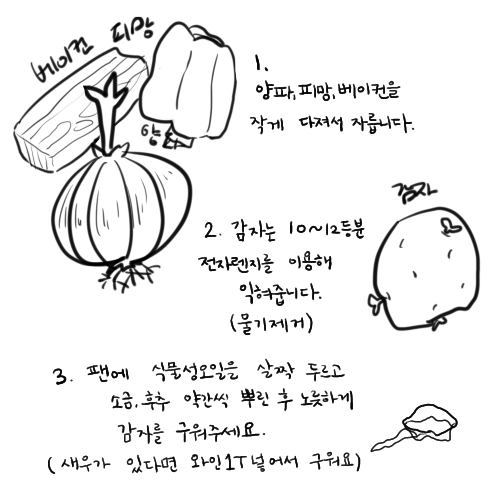 베이컨
피망
1.
양파, 피망, 베이컨을
작게 다져서 자릅니다.
감자
2. 감자는 10~12등분
전자렌지를 이용해
익혀줍니다.
(물기제거)
3. 팬에 식물성오일을 살짝 두르고
소금, 후추 약간씩 뿌린 후 노릇하게
감자를 구워주세요.
(새우가 있다면 와인1T넣어서 구워요)